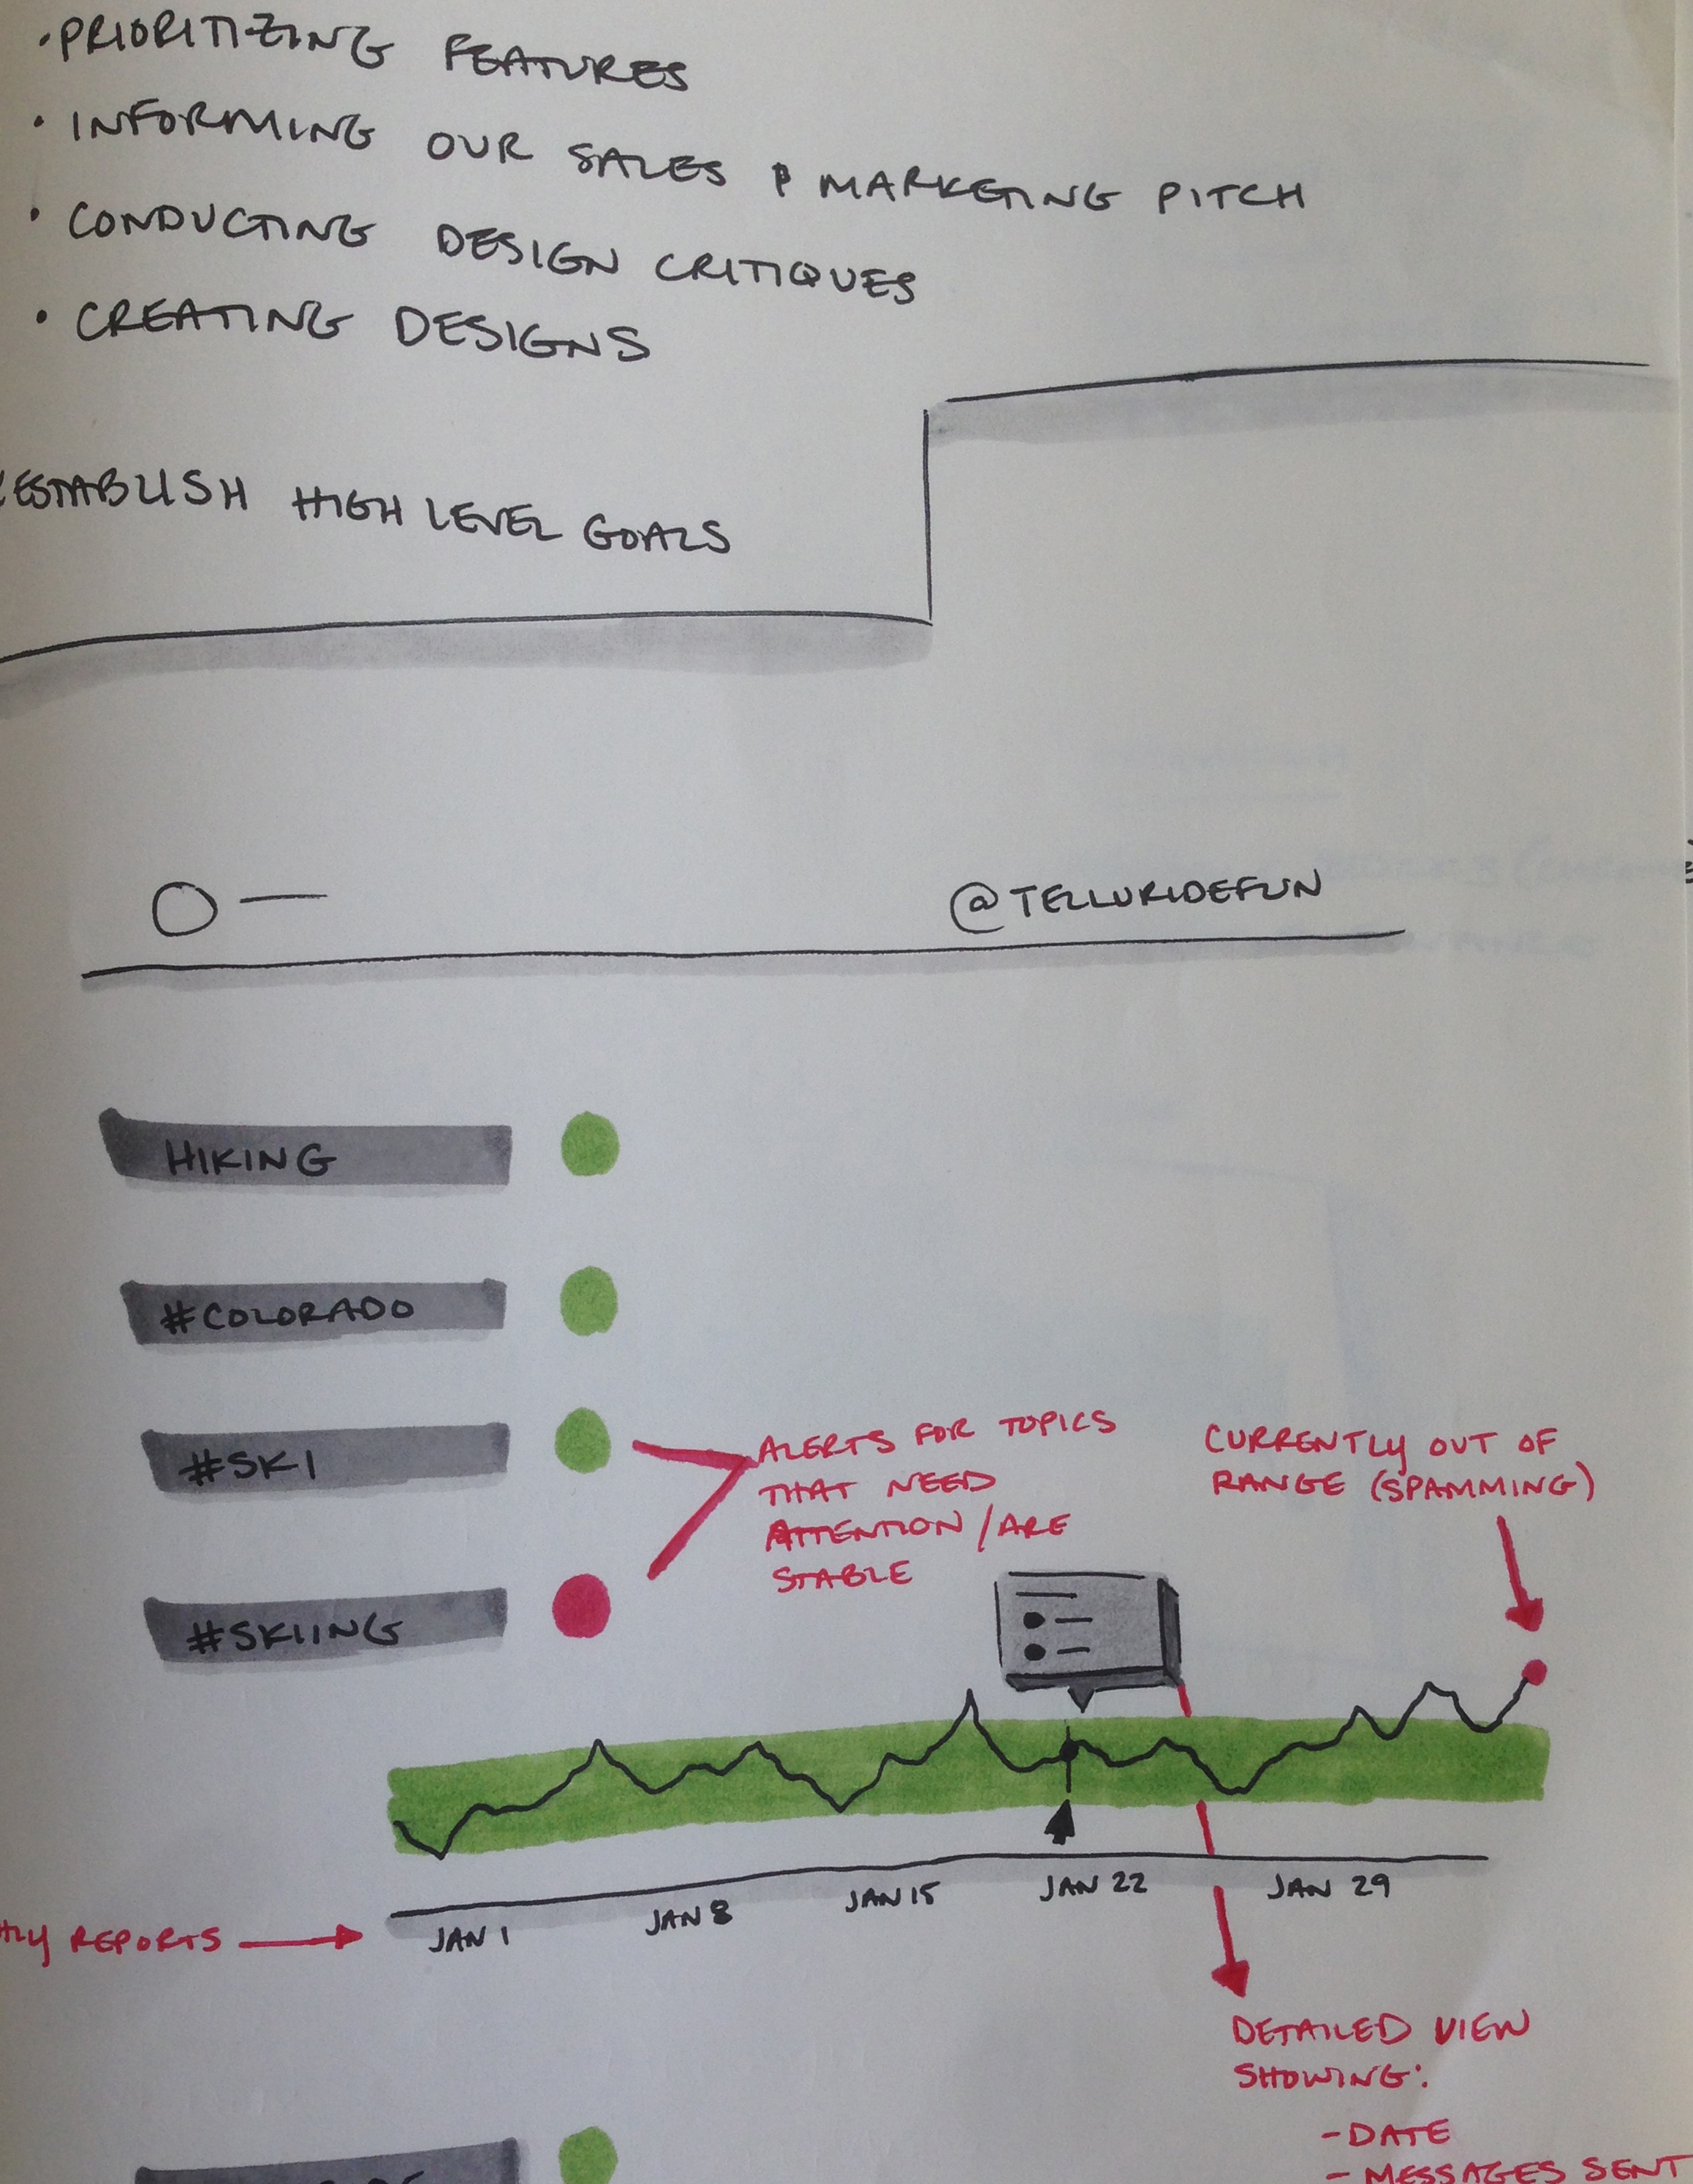 • PRIORITIZING FEATURES
• INFORMING OUR SALES & MARKETING PITCH
• CONDUCTING DESIGN CRITIQUES
• CREATING DESIGNS
ESTABLISH HIGH LEVEL GOALS
@TELLURIDEFUN
HIKING
#COLORADO
#SKI
ALERTS FOR TOPICS
THAT NEED
ATTENTION / ARE
STABLE
CURRENTLY OUT OF
RANGE (SPAMMING)
#SKIING
JAN 1 JAN 8 JAN 15 JAN 22 JAN 29
REPORTS
DETAILED VIEW
SHOWING:
- DATE
- MESSAGES SENT